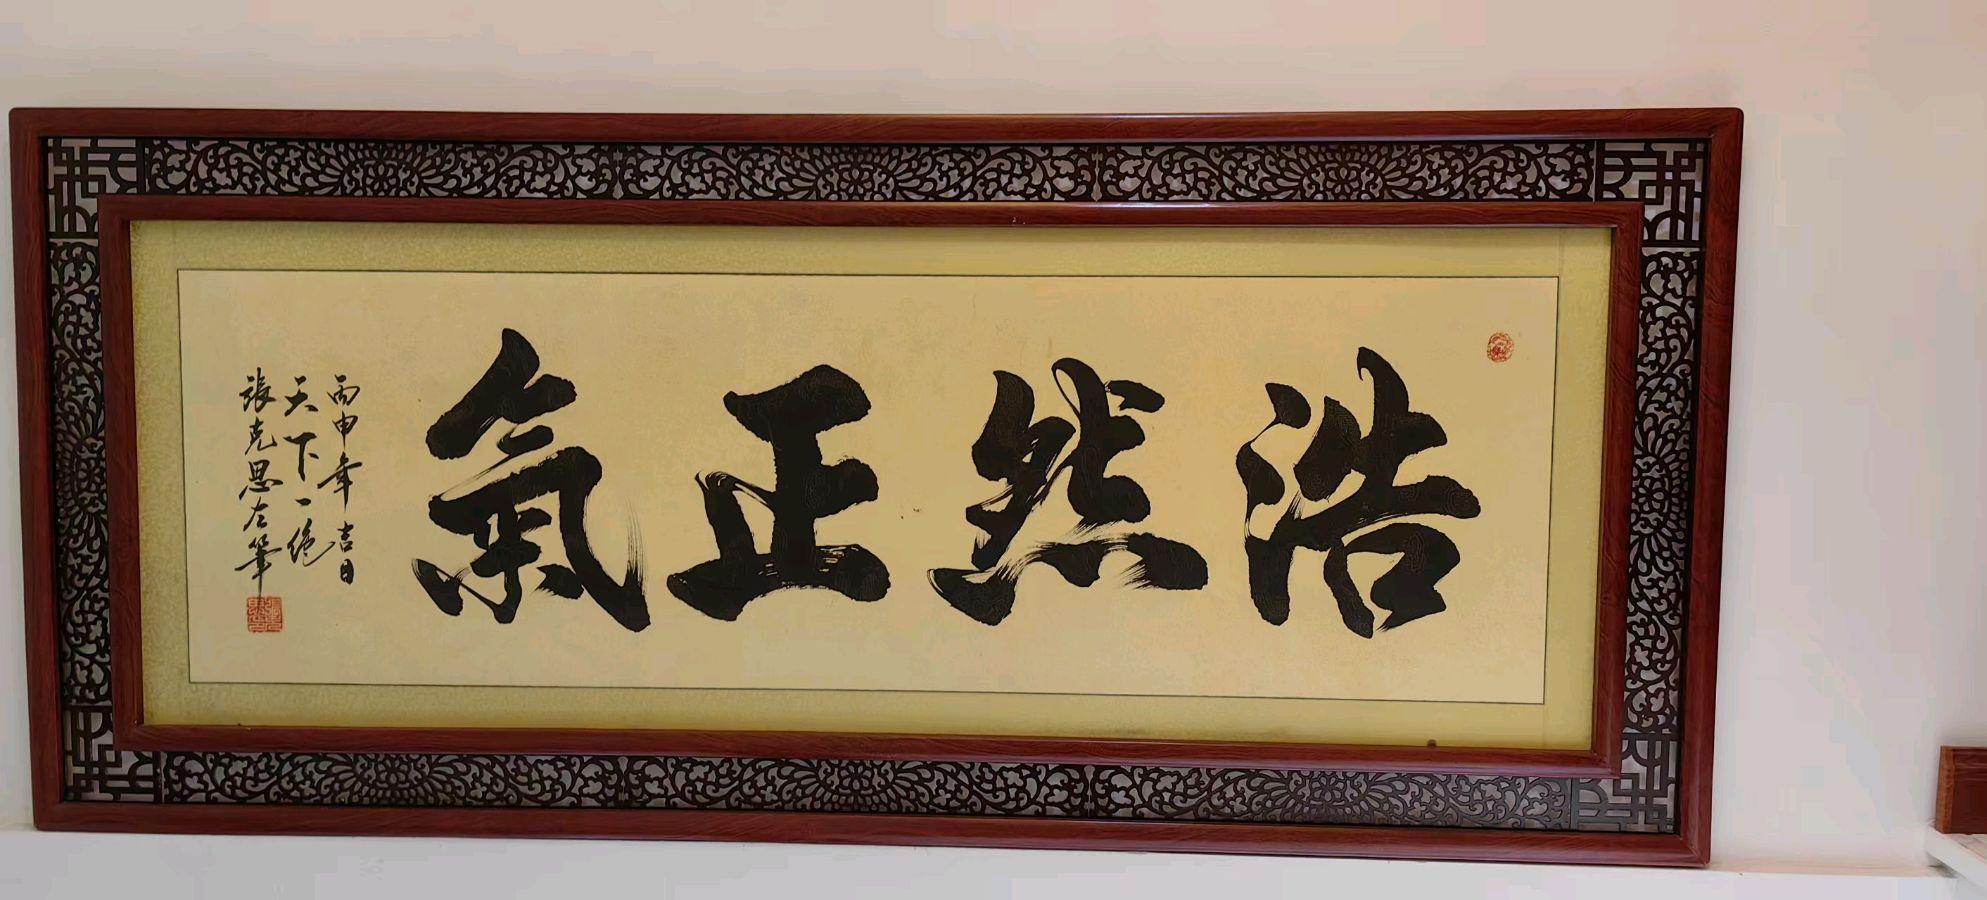 浩然正氣
丙申年吉日
天下一绝
張克思左筆